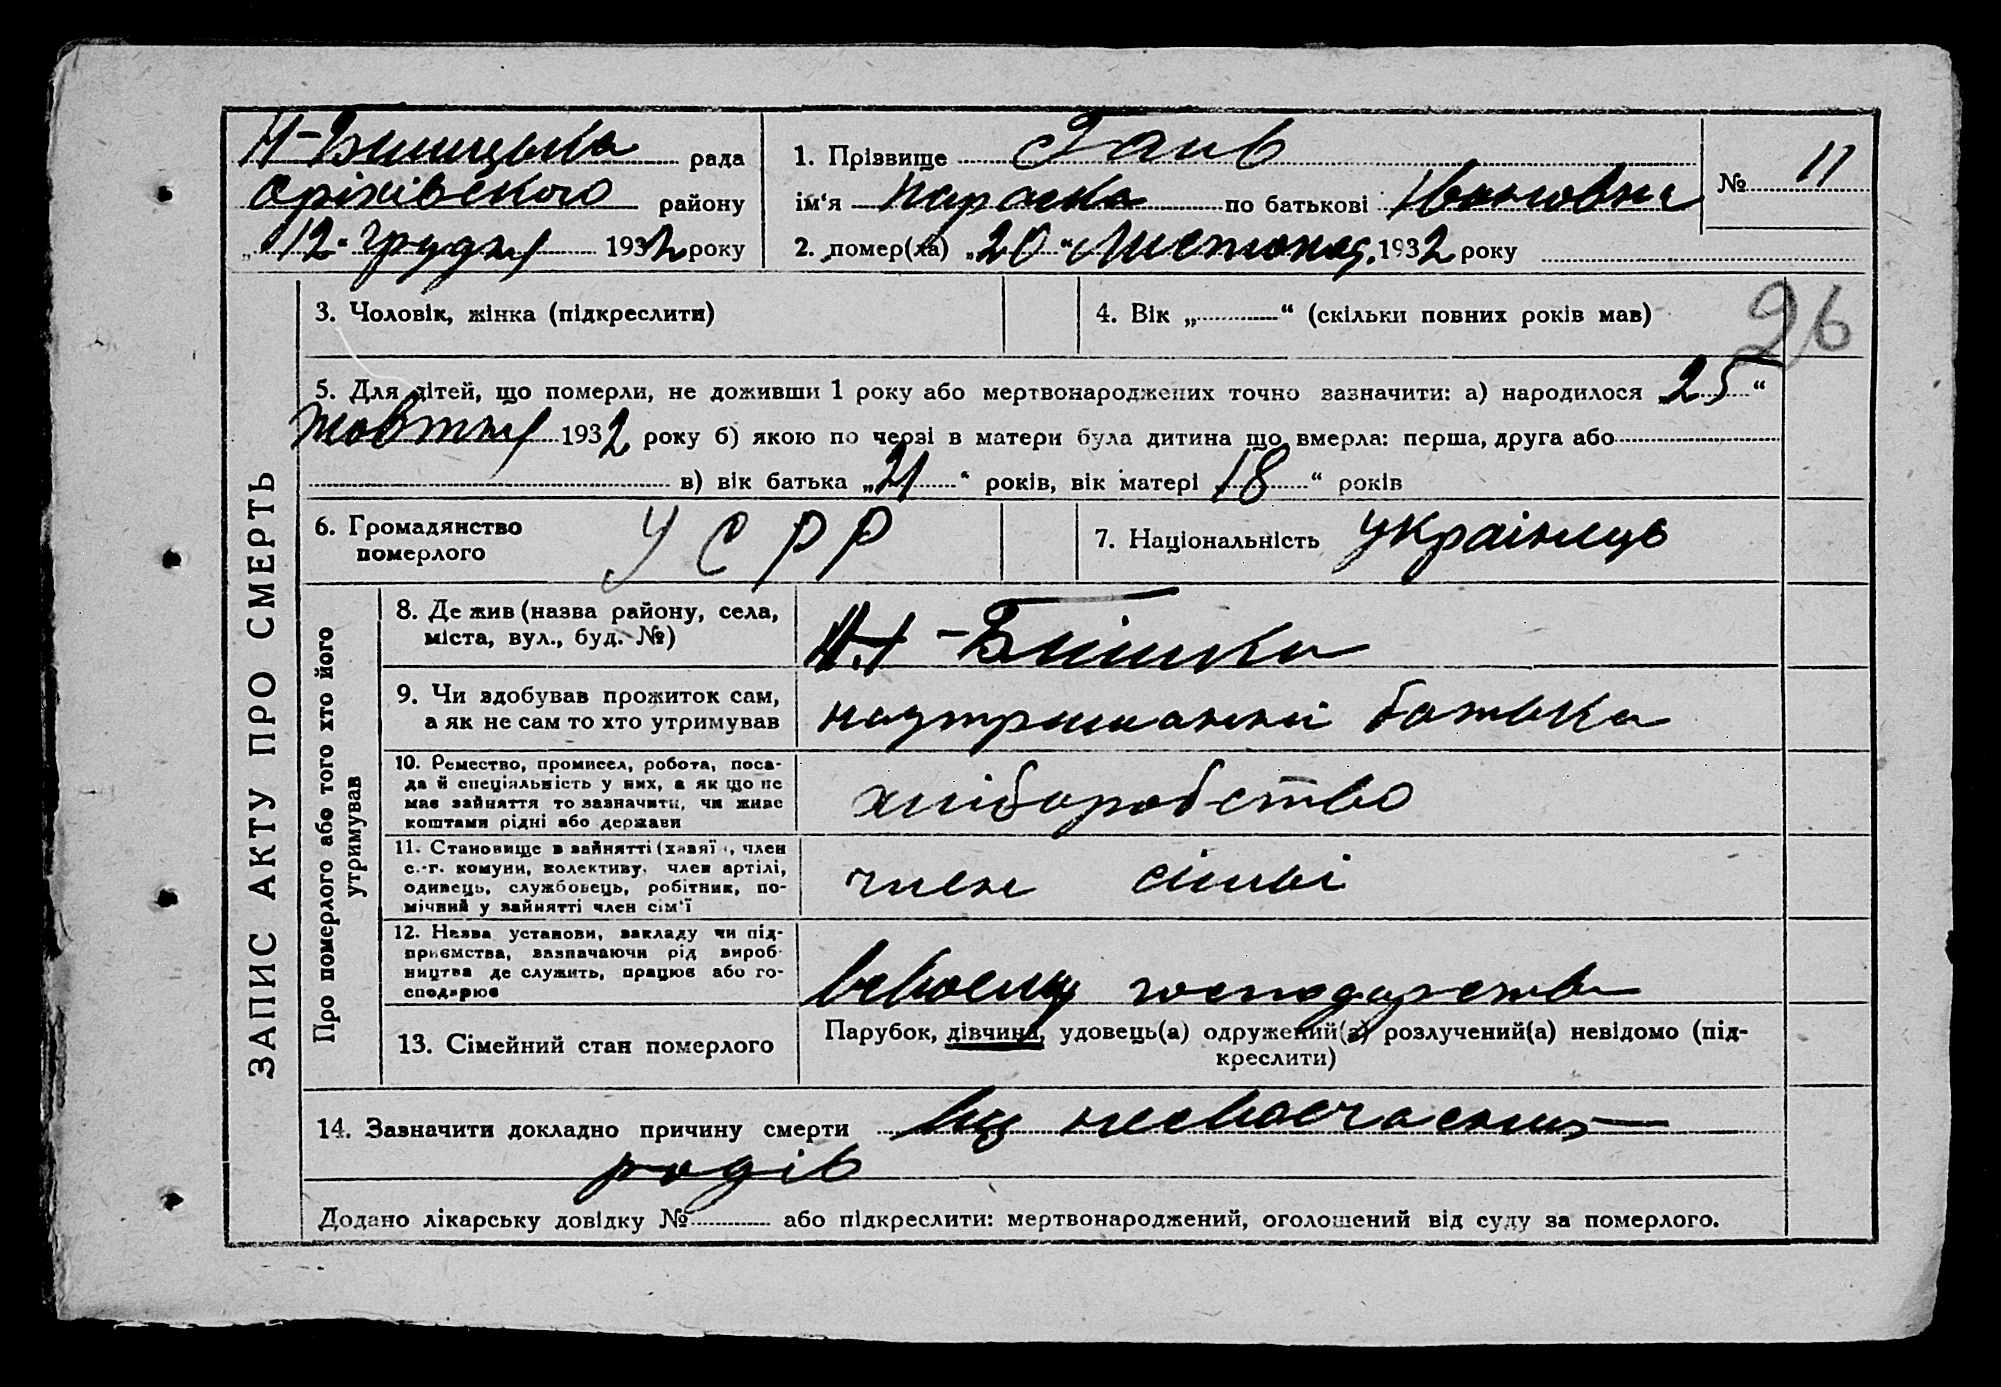 Н- рада
оріхівського району
„12“ грудня 1932 року
1. Прізвище Ганв
ім'я Параска по батькові Івановна
2. помер(ла) „20“ Листопад. 1932 року
№ 11
26
3. Чоловік, жінка (підкреслити)
4. Вік „ “ (скільки повних років мав)
5. Для дітей, що померли, не доживши 1 року або мертвонароджених точно зазначити: а) народилося „25“
жовтня 1932 року б) якою по черзі в матери була дитина що вмерла: перша, друга або
в) вік батька „21“ років, вік матері „18“ років
6. Громадянство
померлого
УСРР
7. Національність українець
ЗАПИС АКТУ ПРО СМЕРТЬ
Про померлого або того хто його
утримував
8. Де жив (назва району, села,
міста, вул., буд. №)
9. Чи здобував прожиток сам,
а як не сам то хто утримував
наутриманні батька
10. Ремество, промисел, робота, поса-
да й спеціяльність у них, а як що не
має зайняття то зазначити, чи живе
коштами рідні або держави
хліборобство
11. Становище в зайнятті (хазяї , член
с.-г. комуни, колективу, член артілі,
одинець, службовець, робітник, по-
мічний у зайнятті член сім'ї
член сімьі
12. Назва установи, закладу чи під-
приємства, зазначаючи рід вироб-
ництва де служить, працює або го-
сподарює
всвоему господарства
13. Сімейний стан померлого
Парубок, дівчина, удовець(а) одружений(а) розлучений(а) невідомо (під-
креслити)
14. Зазначити докладно причину смерти невоєчасних
родів
Додано лікарську довідку № або підкреслити: мертвонароджений, оголошений від суду за померлого.